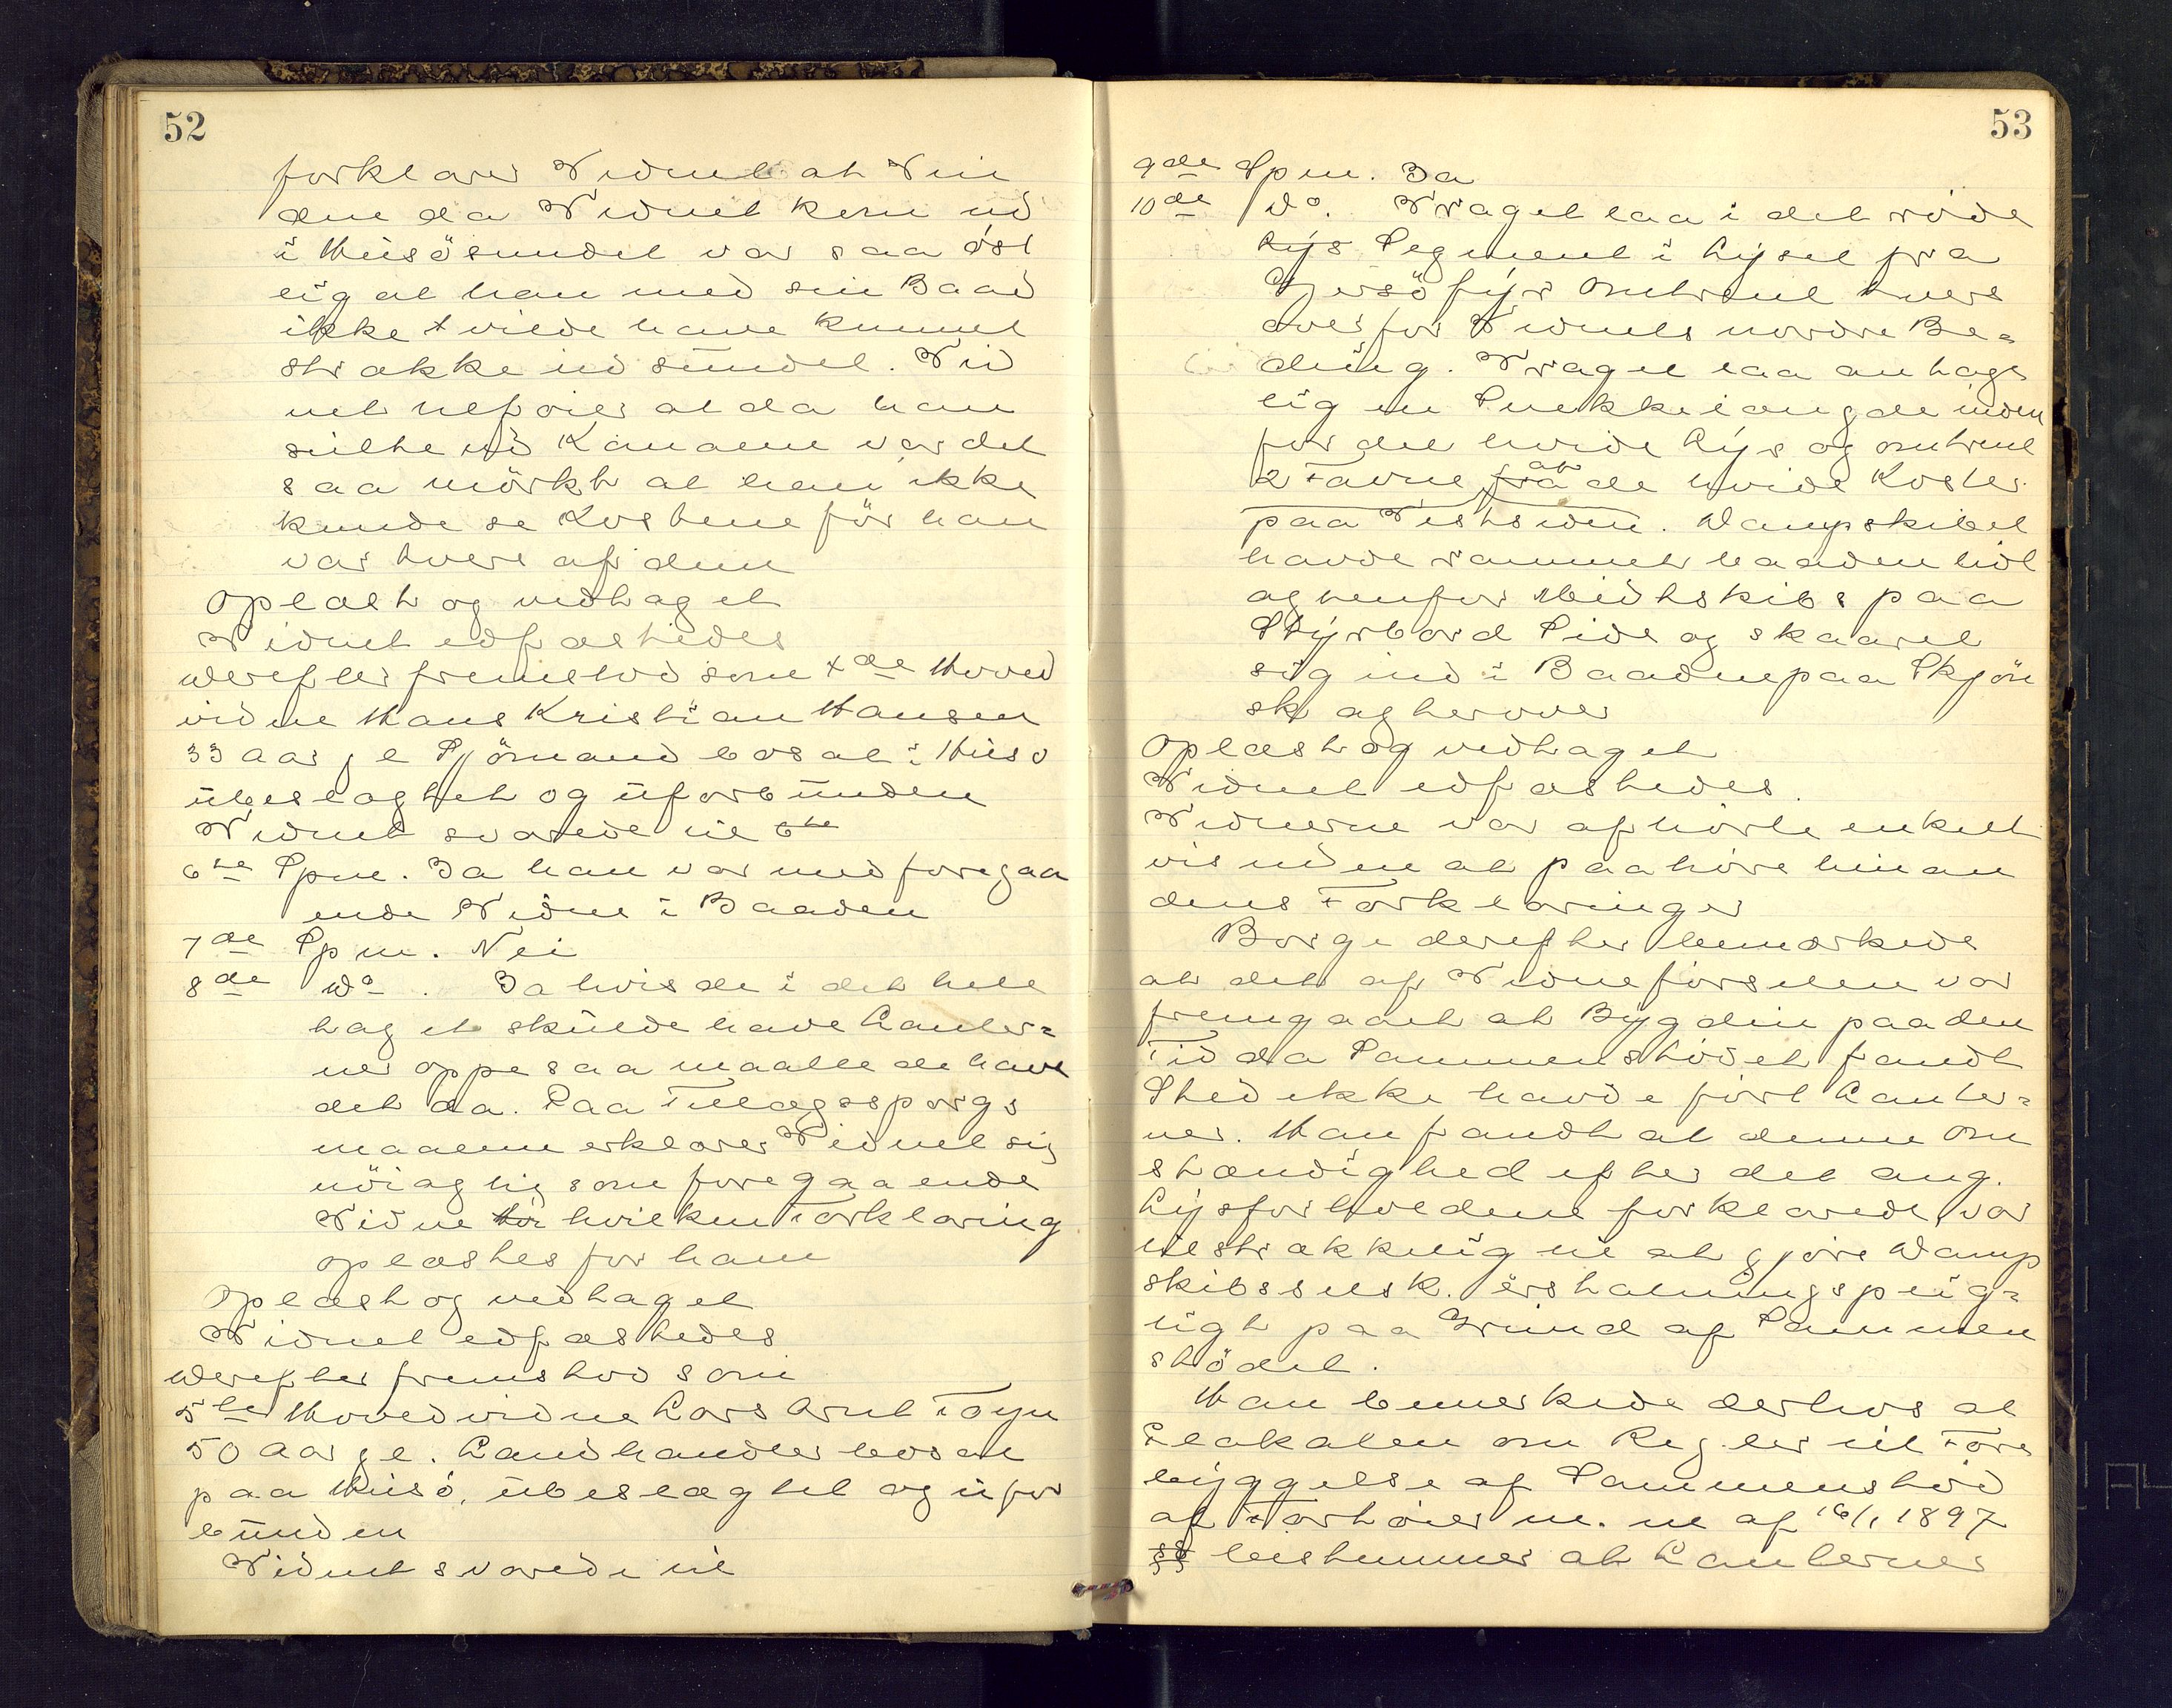 52
forklarer Vidnet at Vin
den da Vidnet kom ud
i Husösundet var saa öst
lig at han med sin Baad
ikke vilde have kunnet
strække ind sundet. Vid
net tilføier at da han
seilte ud Kanalen var det
saa mörkt at han ikke
kunde se Kostene för han
var tvers af dem
Oplæst og vedtaget
Vidnet edfæstedes
Derefter fremstod som 4de Hoved
vidne Hans Kristian Hansen
33 Aar gl Sjömand bosat i Husö
ubeslægtet og uforbunden
Vidnet svarede til 6te
6te Spm. Ja han var med foregaa
ende Vidne i Baaden
7de Spm. Nei
8de Do. Ja hvis de i det hele
taget skulde have Lanter=
ner oppe saa maatte de have
det da. Paa Tillægsspørgs
maalene erklærer Vidnet sig
nöiagtig som foregaaende
Vidne hvilken Forklaring
oplæstes for ham
Oplæst og vedtaget
Vidnet edfæstedes
Derefter fremstod som
5te Hovedvidne Lars Arnt Föyn
50 Aar gl. Landhandler bosat
paa Husö, ubeslægtet og ufor
bunden
Vidnet svarede til
53
9de Spm. Ja
10de Do. Vraget laa i det röde
Lys Segment i Lyset fra
Gjersöfyr omtrent tvers
over for Vidnets nordre Be=
ding. Vraget laa antage
lig en Snekkelængde inden
for det hvide Lys og omtrent
2 Favne af de hvide Koster
paa Vestsiden. Dampskibet
havde rammet baaden lidt
agtenfor Midtskibs paa
Styrbord Side og skaaret
sig ind i Baaden paa Skjön
sk agterover
Oplæst og vedtaget
Vidnet edfæstedes.
Vidnerne var afhörte enkelt
vis uden at paahöre hinan
dens Forklaringer
Borge derefter bemærkede
at det af Vidneförselen var
fremgaaet at Bygdin paa den
Tid da Sammenstödet fandt
Sted ikke havde fört Lanter=
ner. Man fandt at denne Om
stændighed efter det ang.
Lysforholdene forklarede, var
tilstrækkelig til at gjöre Damp
skibsselsk. erstatningspligt=
ligt paa Grund af Sammen
stödet.
Man bemerkede derhos at
Plakaten om Regler til Fore
byggelse af Sammenstöd
af Fartöier m. m af 16/1 1897
§§ bestemmer at Lanternes